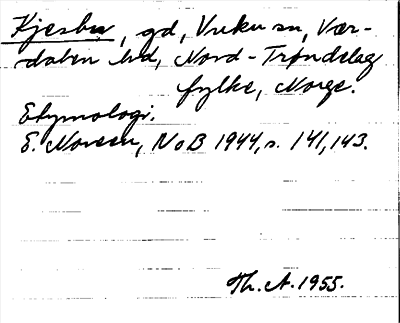 Kjesbu, gd, Vuku sn, Vær-
dalen hd, Nord-Trøndelag
fylke, Norge.
Etymologi.
E. Noreen, NoB 1944, s. 141, 143.
Th. A. 1955.